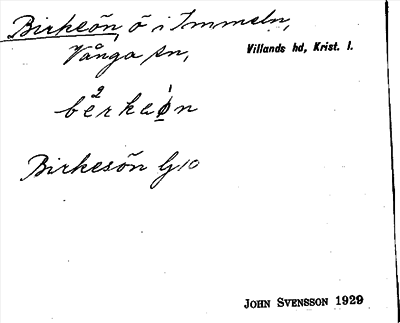 Birkeön, ö i Immeln,
Vånga sn, Villands hd, Krist. l.
bèrkeøn
Birkesön G10
JOHN SVENSSON 1929